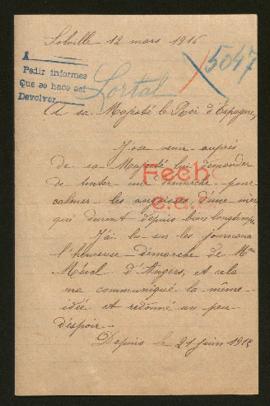 Lohille 12 mars 1916
A
Pedir informes
Que se hace así
Devolver
Lortal
5047
A sa Majesté le Roi d'Espagne,
J'ose venir auprès
de sa Majesté lui demander
de tenter une démarche pour
calmer les angoisses d'une mère
qui durent depuis bien longtemps.
Fecho
J'ai lu sur les journaux
l'heureuse démarche de Mme
Méral d'Angers, et cela
m'a communiqué la même
idée et redonné un peu
d'espoir.
Depuis le 21 Juin 1915